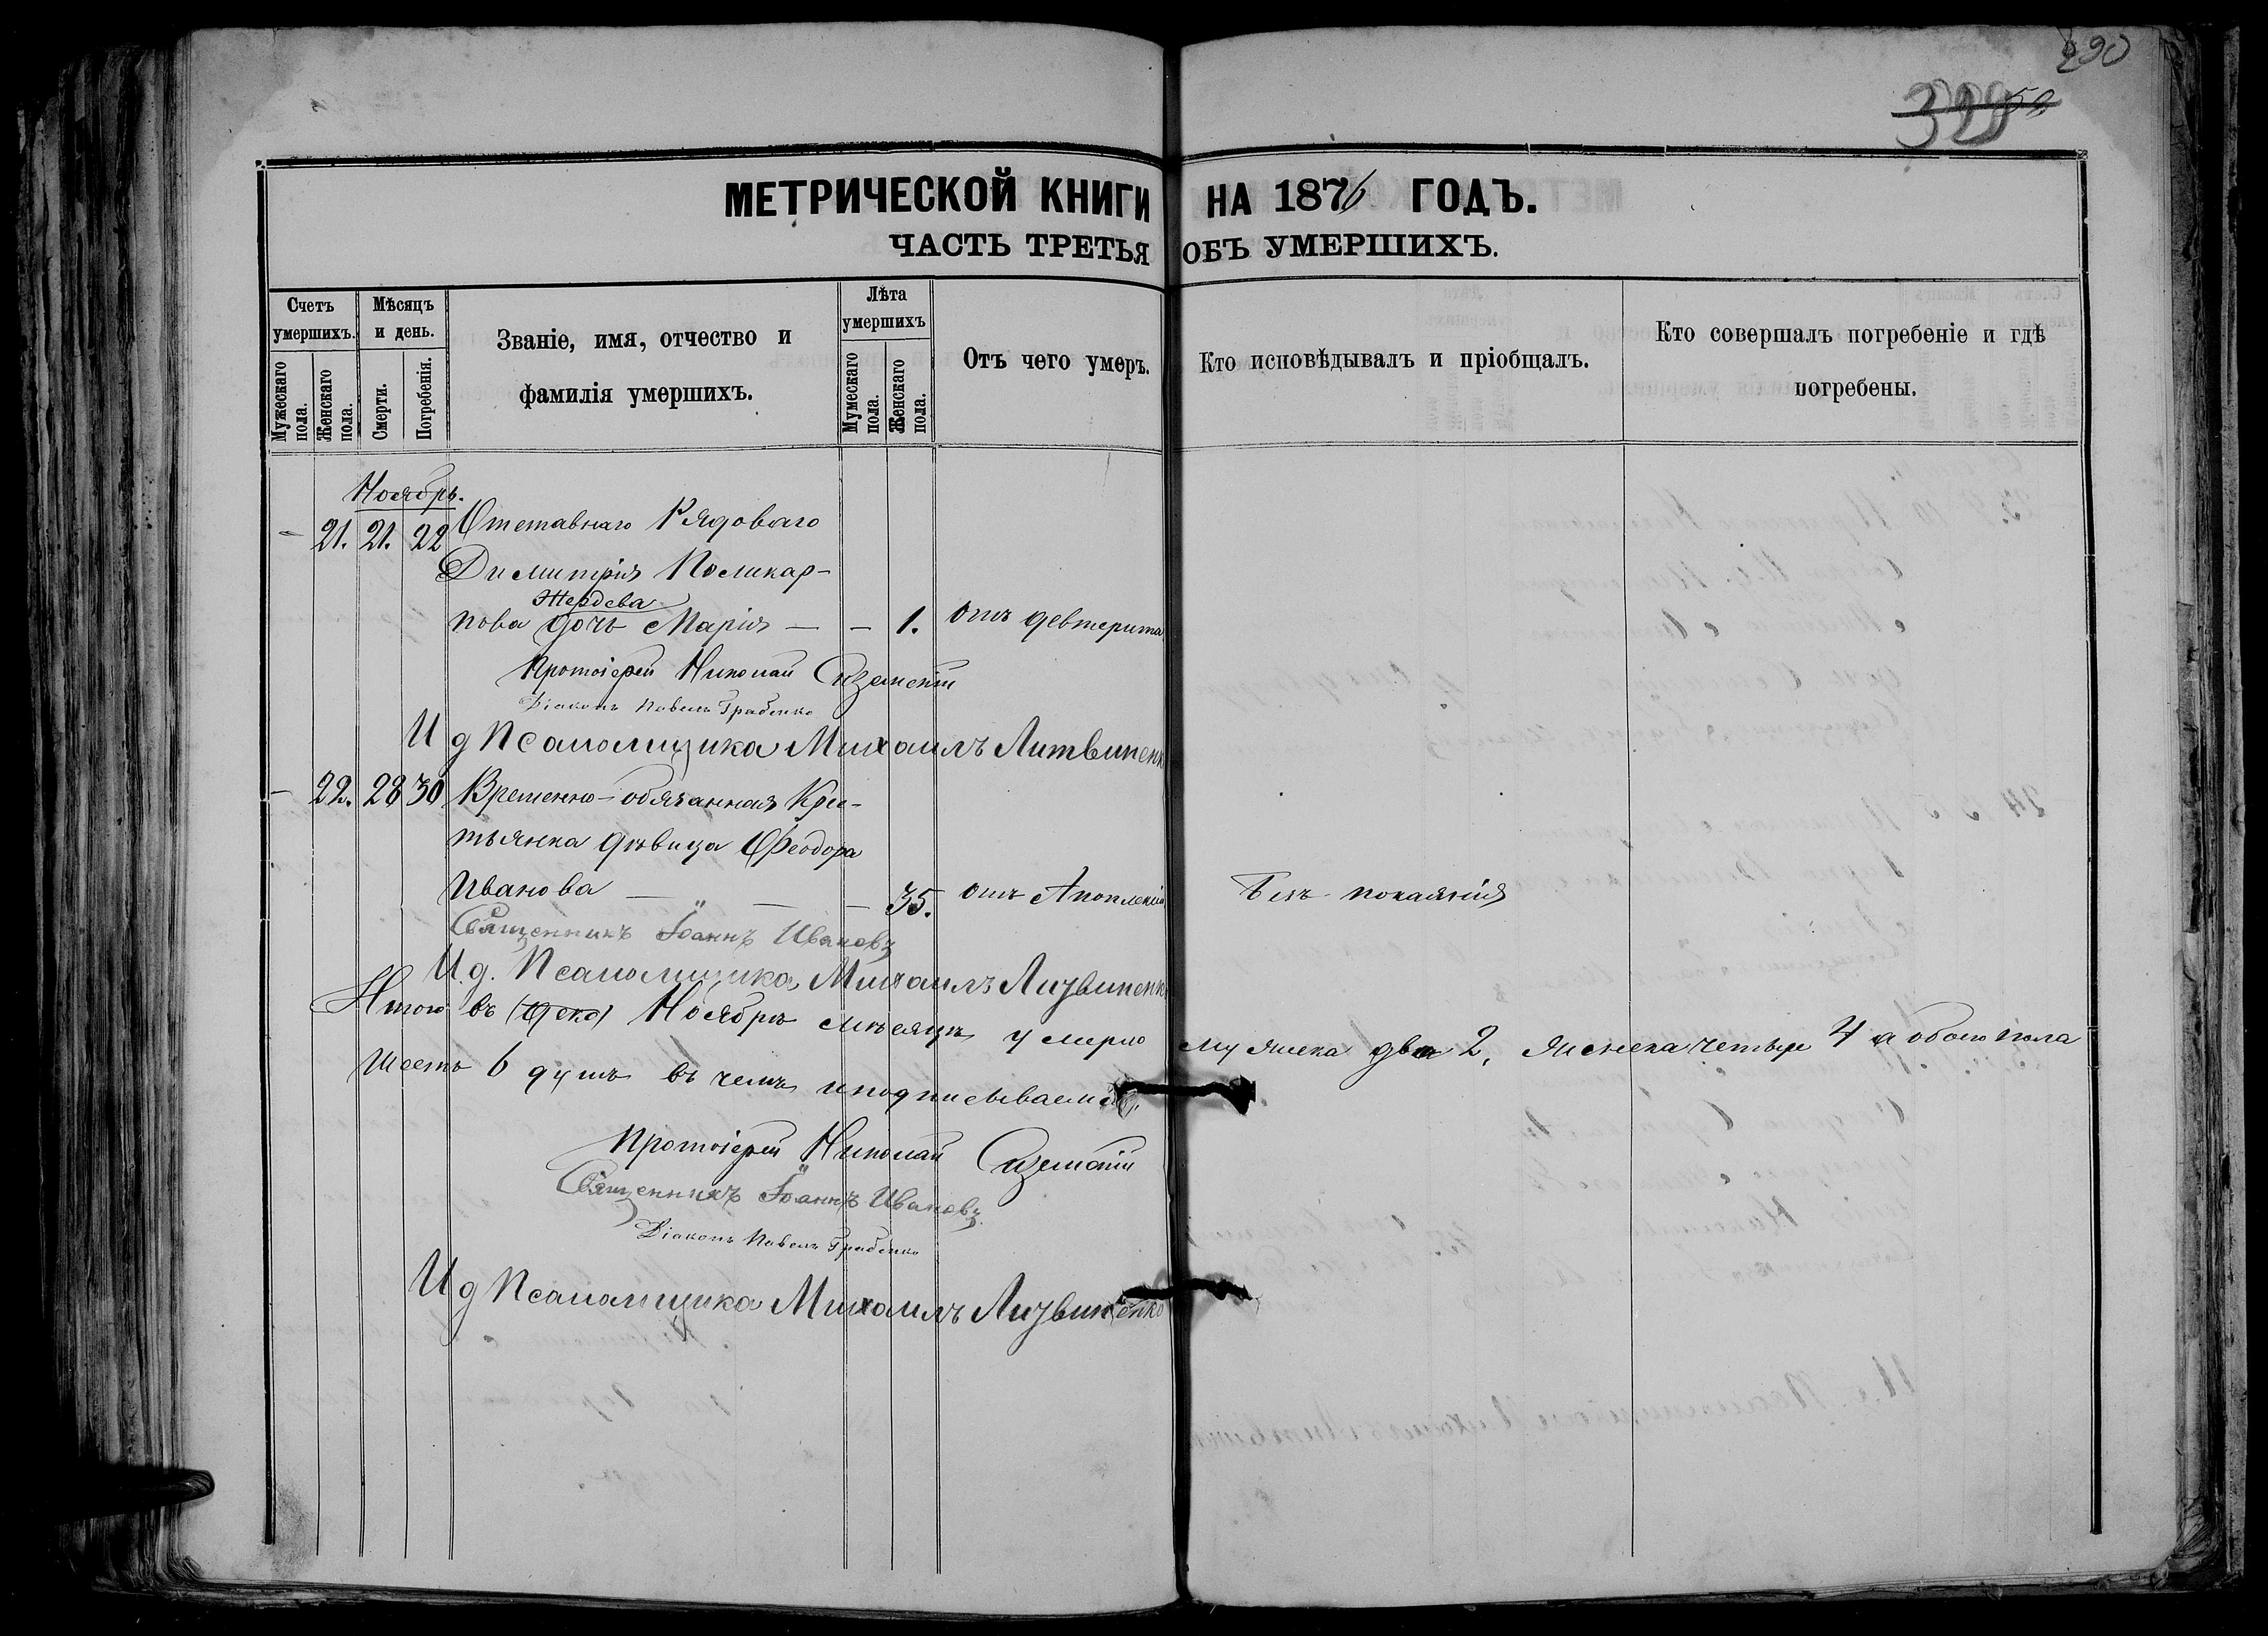 290
329
МЕТРИЧЕСКОЙ КНИГИ НА 1876 ГОДЪ.
ЧАСТЬ ТРЕТЬЯ ОБЪ УМЕРШИХЪ.
Счетъ умершихъ.
Мужескаго пола.
Женскаго пола.
Мѣсяцъ и день.
Смерти.
Погребенія.
Званіе, имя, отчество и
фамилія умершихъ.
Лѣта умершихъ
Мужескаго пола.
Женскаго пола.
Отъ чего умеръ.
Кто исповѣдывалъ и пріобщалъ.
Кто совершалъ погребеніе и гдѣ
погребены.
Ноябрь.
– 21. 21. 22 Отставнаго Рядоваго
Димитрія Поликар-
Жердева
пова дочь Марія — – 1. отъ девтерита
Протоіерей Николай
Діаконъ Павелъ Грабенко
И д Псаломщика Михаилъ Литвиненк
– 22. 28 30 Временно-обязанная Крес-
тьянка дѣвица Феодора
Иванова — — – 35. отъ Апоплексіи Безъ покаянія
Священникъ Іоаннъ Ивановъ
И д. Псаломщика Михаилъ Литвиненк
Итого въ (Деко) Ноябрѣ мѣсяцѣ умерло мужеска два 2, женска четыре 4 а обоего пола
шесть 6 душъ въ чемъ и подписываемся.
Протоіерей Николай
Священникъ Іоаннъ Ивановъ
Діаконъ Павелъ Грабенко
И д Псаломщика Михаилъ Литвиненко